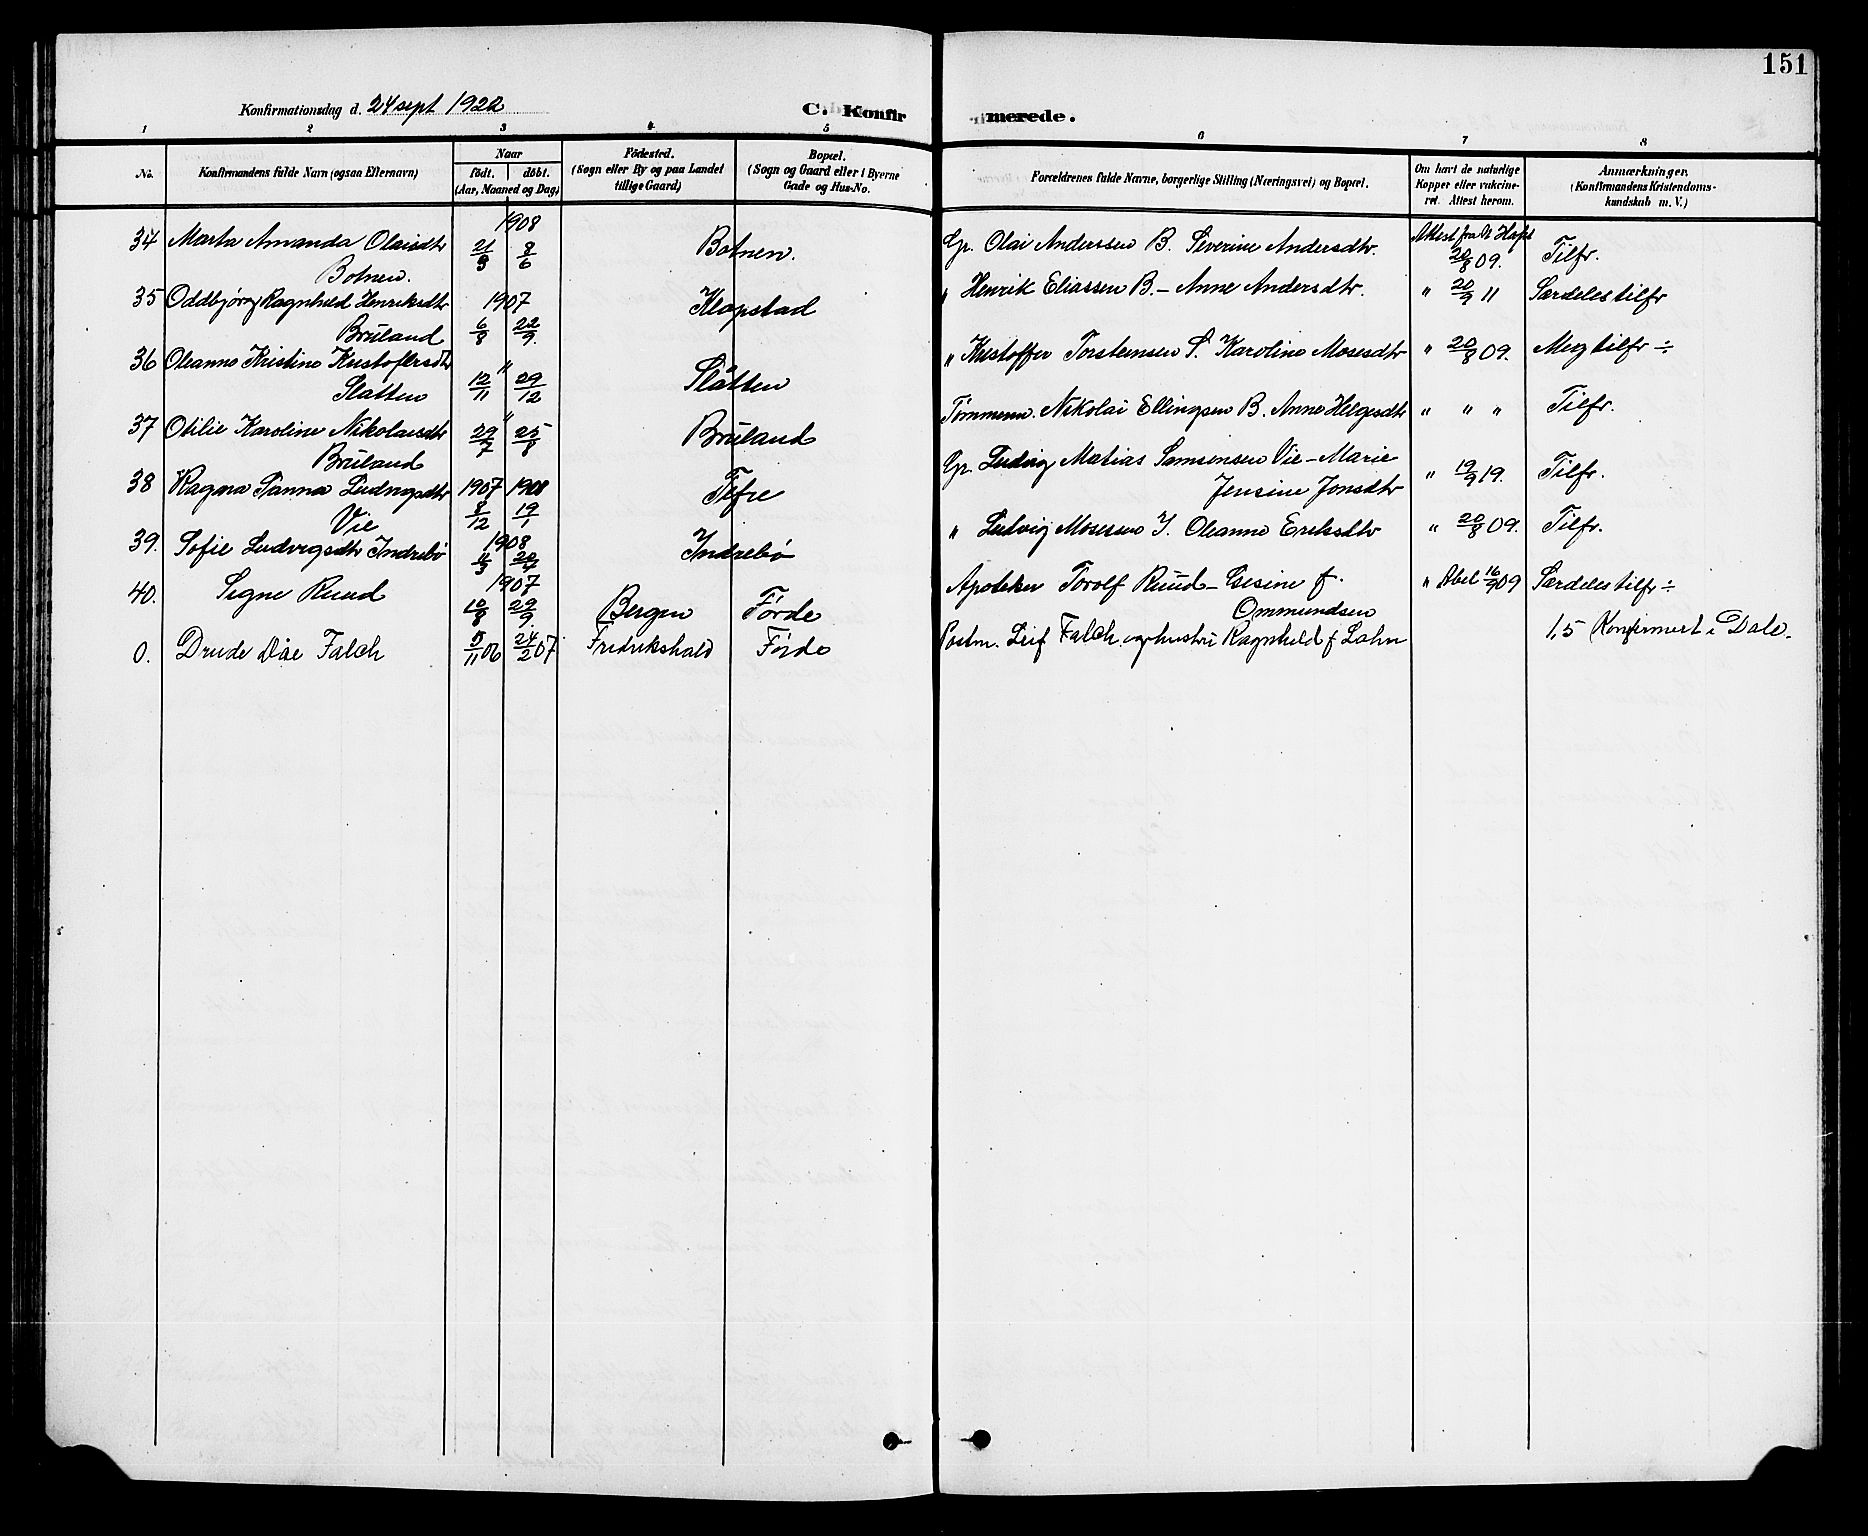 151
Konfirmationsdag d. 24 sept 1922
C. Konfirmerede.
1 2 3 4 5 6 7 8
No.
Konfirmandens fulde Navn (ogsaa Efternavn)
Naar
født. døbt.
(Aar, Maaned og Dag)
Födested.
(Sogn eller By og paa Landet
tillige Gaard)
Bopæl.
(Sogn og Gaard eller i Byerne
Gade og Hus-No.
Forældrenes fulde Navne, borgerlige Stilling (Næringsvei) og Bopæl.
Om havt de naturlige
Kopper eller vakcine-
ret. Attest herom.
Anmærkninger.
(Konfirmandens Kristendoms-
kundskab m. V.)
1908
34 Marta Amanda Olaisdtr 21/3 8/6 Botnen. Gp. Olai Anderssen B. Severine Andersdtr. Attest fra 20/8 09. Tilfr.
Botnen.
35 Oddbjørg Ragnhild Henriksdtr 1907 Klopstad " Henrik Eliassen B. – Anne Andersdtr. " 20/9 11 Særdeles tilfr
Bruland 6/8 22/9.
36 Oleanna Kristine Kristoffersdtr " Slåtten " Kristoffer Torsteinsen S. Karoline Mosesdtr " 20/8 09. Meg tilfr ÷
Slåtten 12/11 29/12
37 Otilie Karoline Nikolaisdtr " 29/7 25/8 Bruland Tømmerm. Nikolai Ellingsen B. Anne Helgesdtr " " " Tilfr.
Bruland
38 Ragna Sanna Ludvigsdtr 1907 1908 Tefre Gp. Ludvig Matias Samsonsen Vie – Marie " 19/9 19. Tilfr.
Vie 8/12 19/1 Jensine Jonsdtr
39. Sofie Ludvigsdtr Indrebø 1908 Indrebø " Ludvig Mosessen I. Oleanne Eriksdtr " 20/8 09. Tilfr.
40. Signe Ruud 1907 10/8 29/9. Bergen Førde Apoteker Torolf Ruud – Gesine f. " Abel 16/9 09 Særdeles tilfr ÷
Ommundsen
0. Drude Dåe Falch 5/11 06 24/2 07 Fredrikshald Førde Postm. Leif Falch og hustru Ragnhild f Lahn 1,5 Konfirmert i Dale.